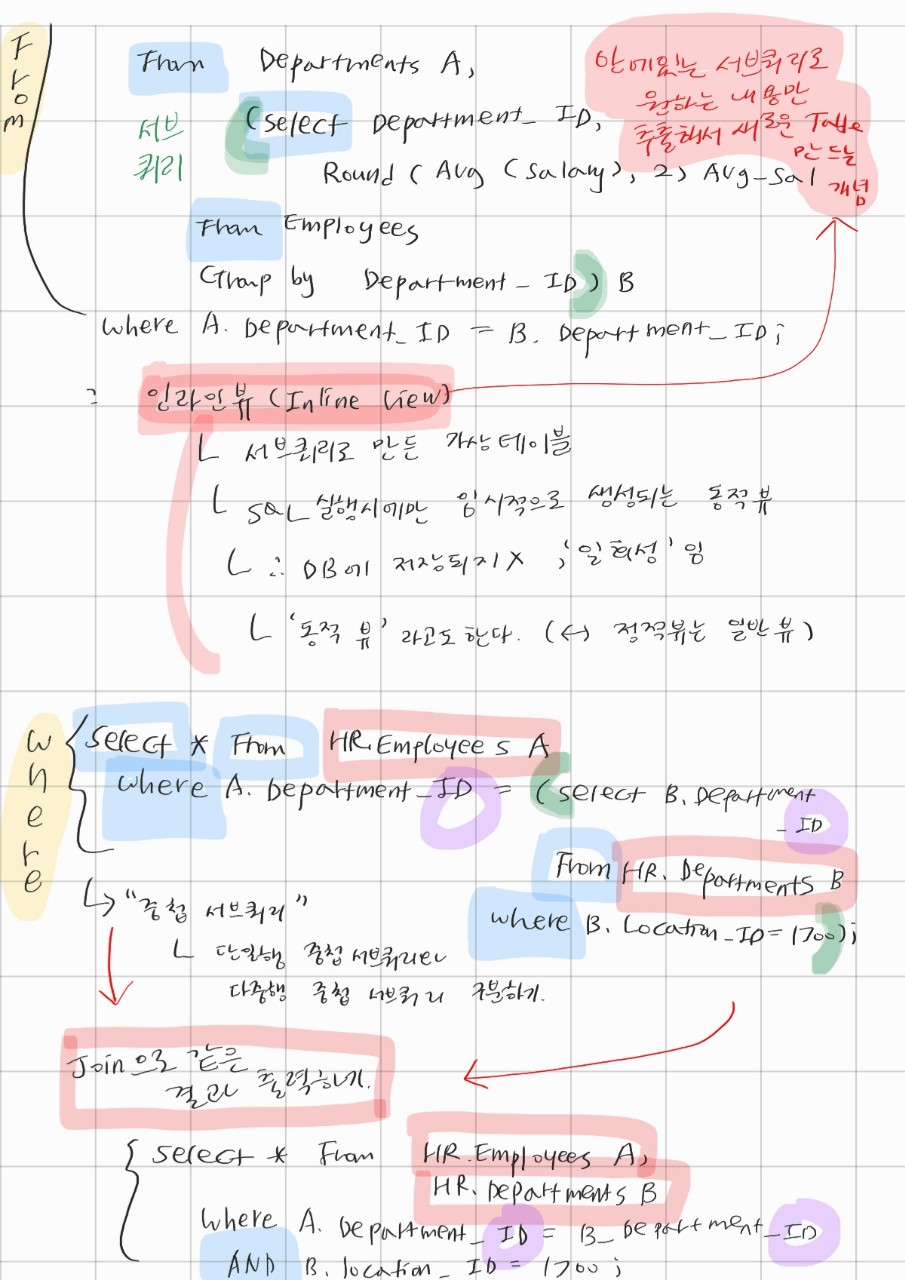 From
From Departments A,
안에있는 서브쿼리로
원하는 내용만
추출해서 새로운 Table
만드는
개념
서브
쿼리
(select Department_ID,
Round (Avg (Salary), 2) Avg_Sal
From Employees
Group by Department_ID) B
where A. Department_ID = B. Department_ID;
: 인라인뷰 (Inline View)
└ 서브쿼리로 만든 가상테이블
└ SQL 실행시에만 임시적으로 생성되는 동적뷰
└ ∴ DB에 저장되지 X ; '일회성' 임
└ '동적 뷰' 라고도 한다. (↔ 정적뷰는 일반뷰)
where
select * From HR.Employees A
where A. Department_ID = (select B. Department
_ID
From HR. Departments B
where B. Location_ID = 1700);
↳ "중첩 서브쿼리"
└ 단일행 중첩 서브쿼리인지
다중행 중첩 서브쿼리 구분하기.
Join으로 같은
결과 출력하기.
select * From HR.Employees A,
HR. Departments B
where A. Department_ID = B_Department_ID
AND B. location_ID = 1700;